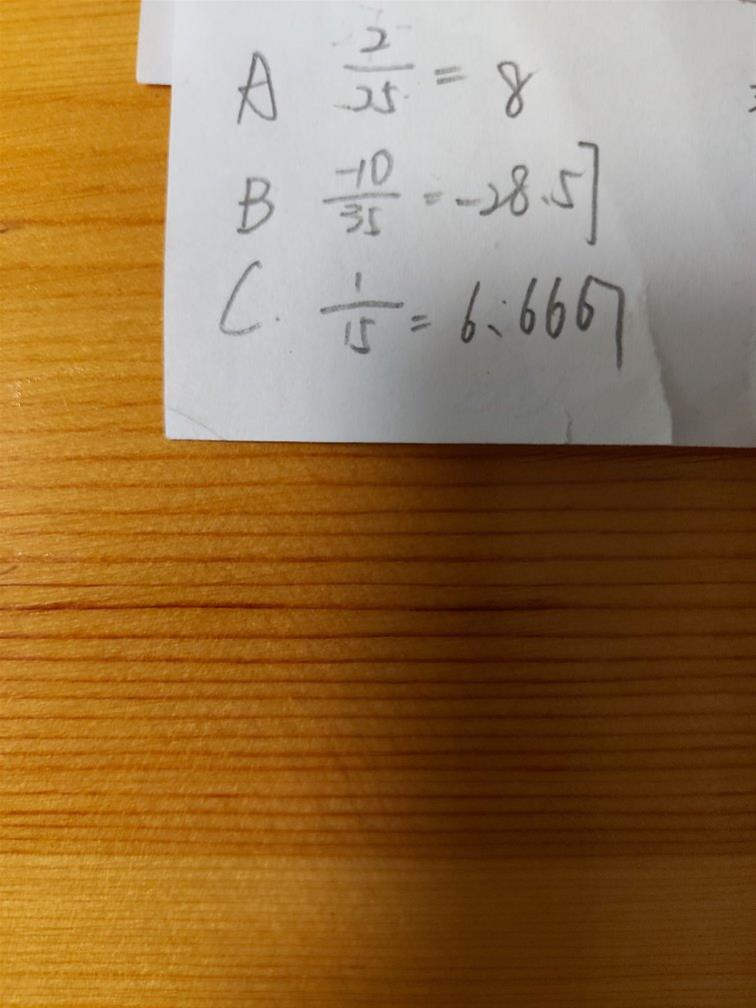 A 2/25 = 8
B -10/35 = -28.57
C. 1/15 = 6.6667